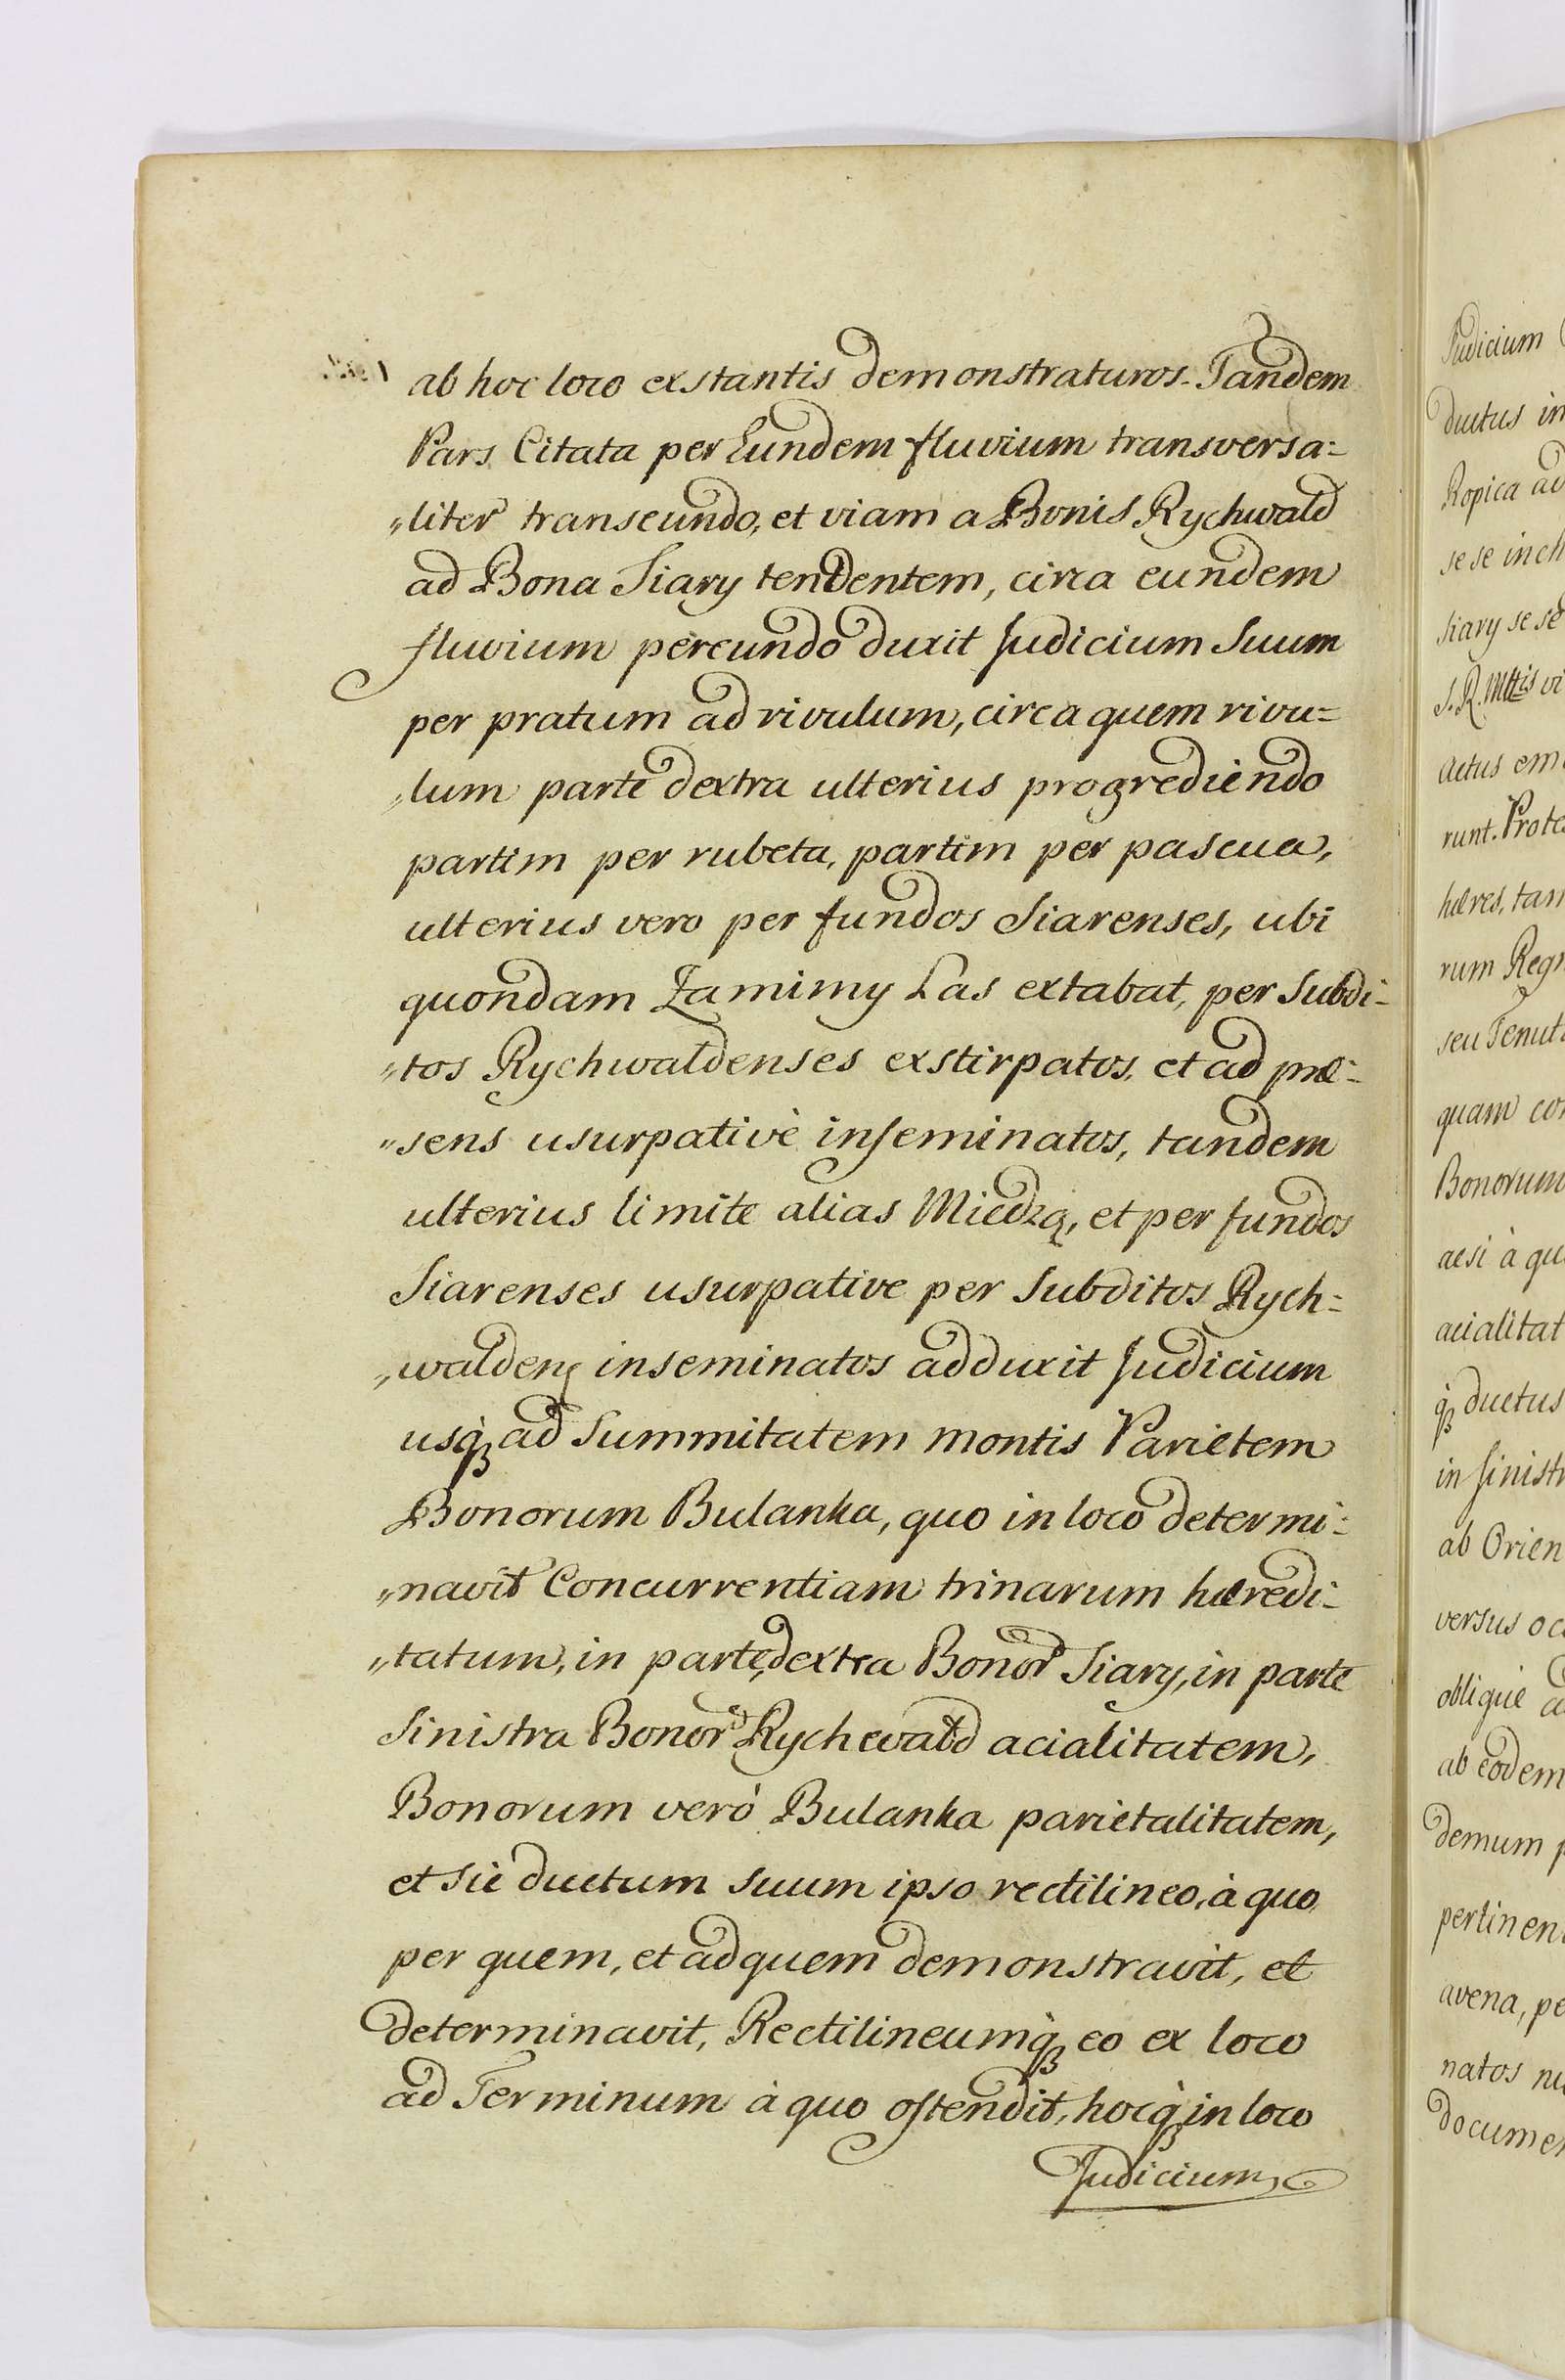 ab hoc loco exstantis demonstraturos. Tandem
Pars Citata per Eundem fluvium transversa=
„liter transeundo, et viam a Bonis Rychwald
ad Bona Siary tendentem, circa eundem
fluvium pereundo duxit Judicium Suum
per pratum ad rivulum, circa quem rivu=
„lum parte dextra ulterius progrediendo
partim per rubeta, partim per pascua,
ulterius vero per fundos Siarenses, ubi
quondam Zamimy Las extabat, per Subdi=
„tos Rychwaldenses exstirpatos, et ad præ=
„sens usurpativè inseminatos, tandem
ulterius limite alias Miedzą, et per fundos
Siarenses usurpative per Subditos Rych=
„walden inseminatos adduxit Judicium
usq̀ ad Summitatem montis Parietem
Bonorum Bulanka, quo in loco determi=
„navit Concurrentiam trinarum hæredi=
„tatum, in parte dextra Bonor Siary, in parte
Sinistra Bonor Rychwald acialitatem,
Bonorum verò Bulanka parietalitatem,
et sic ductum suum ipso rectilineo, à quo
per quem, et ad quem demonstravit, et
determinavit, Rectilineumq̀ eo ex loco
ad Terminum à quo ostendit, hocq̀ in loco
Judicium
Judicium
ductus in
Ropica ad
se se
Siary se se
S. R. Mttis
actus
runt.
hæres,
rum
seu
quam
Bonorum
à
q̀ ductus
in
ab
versus
obliquè
ab eodem
demum
avena,
natos